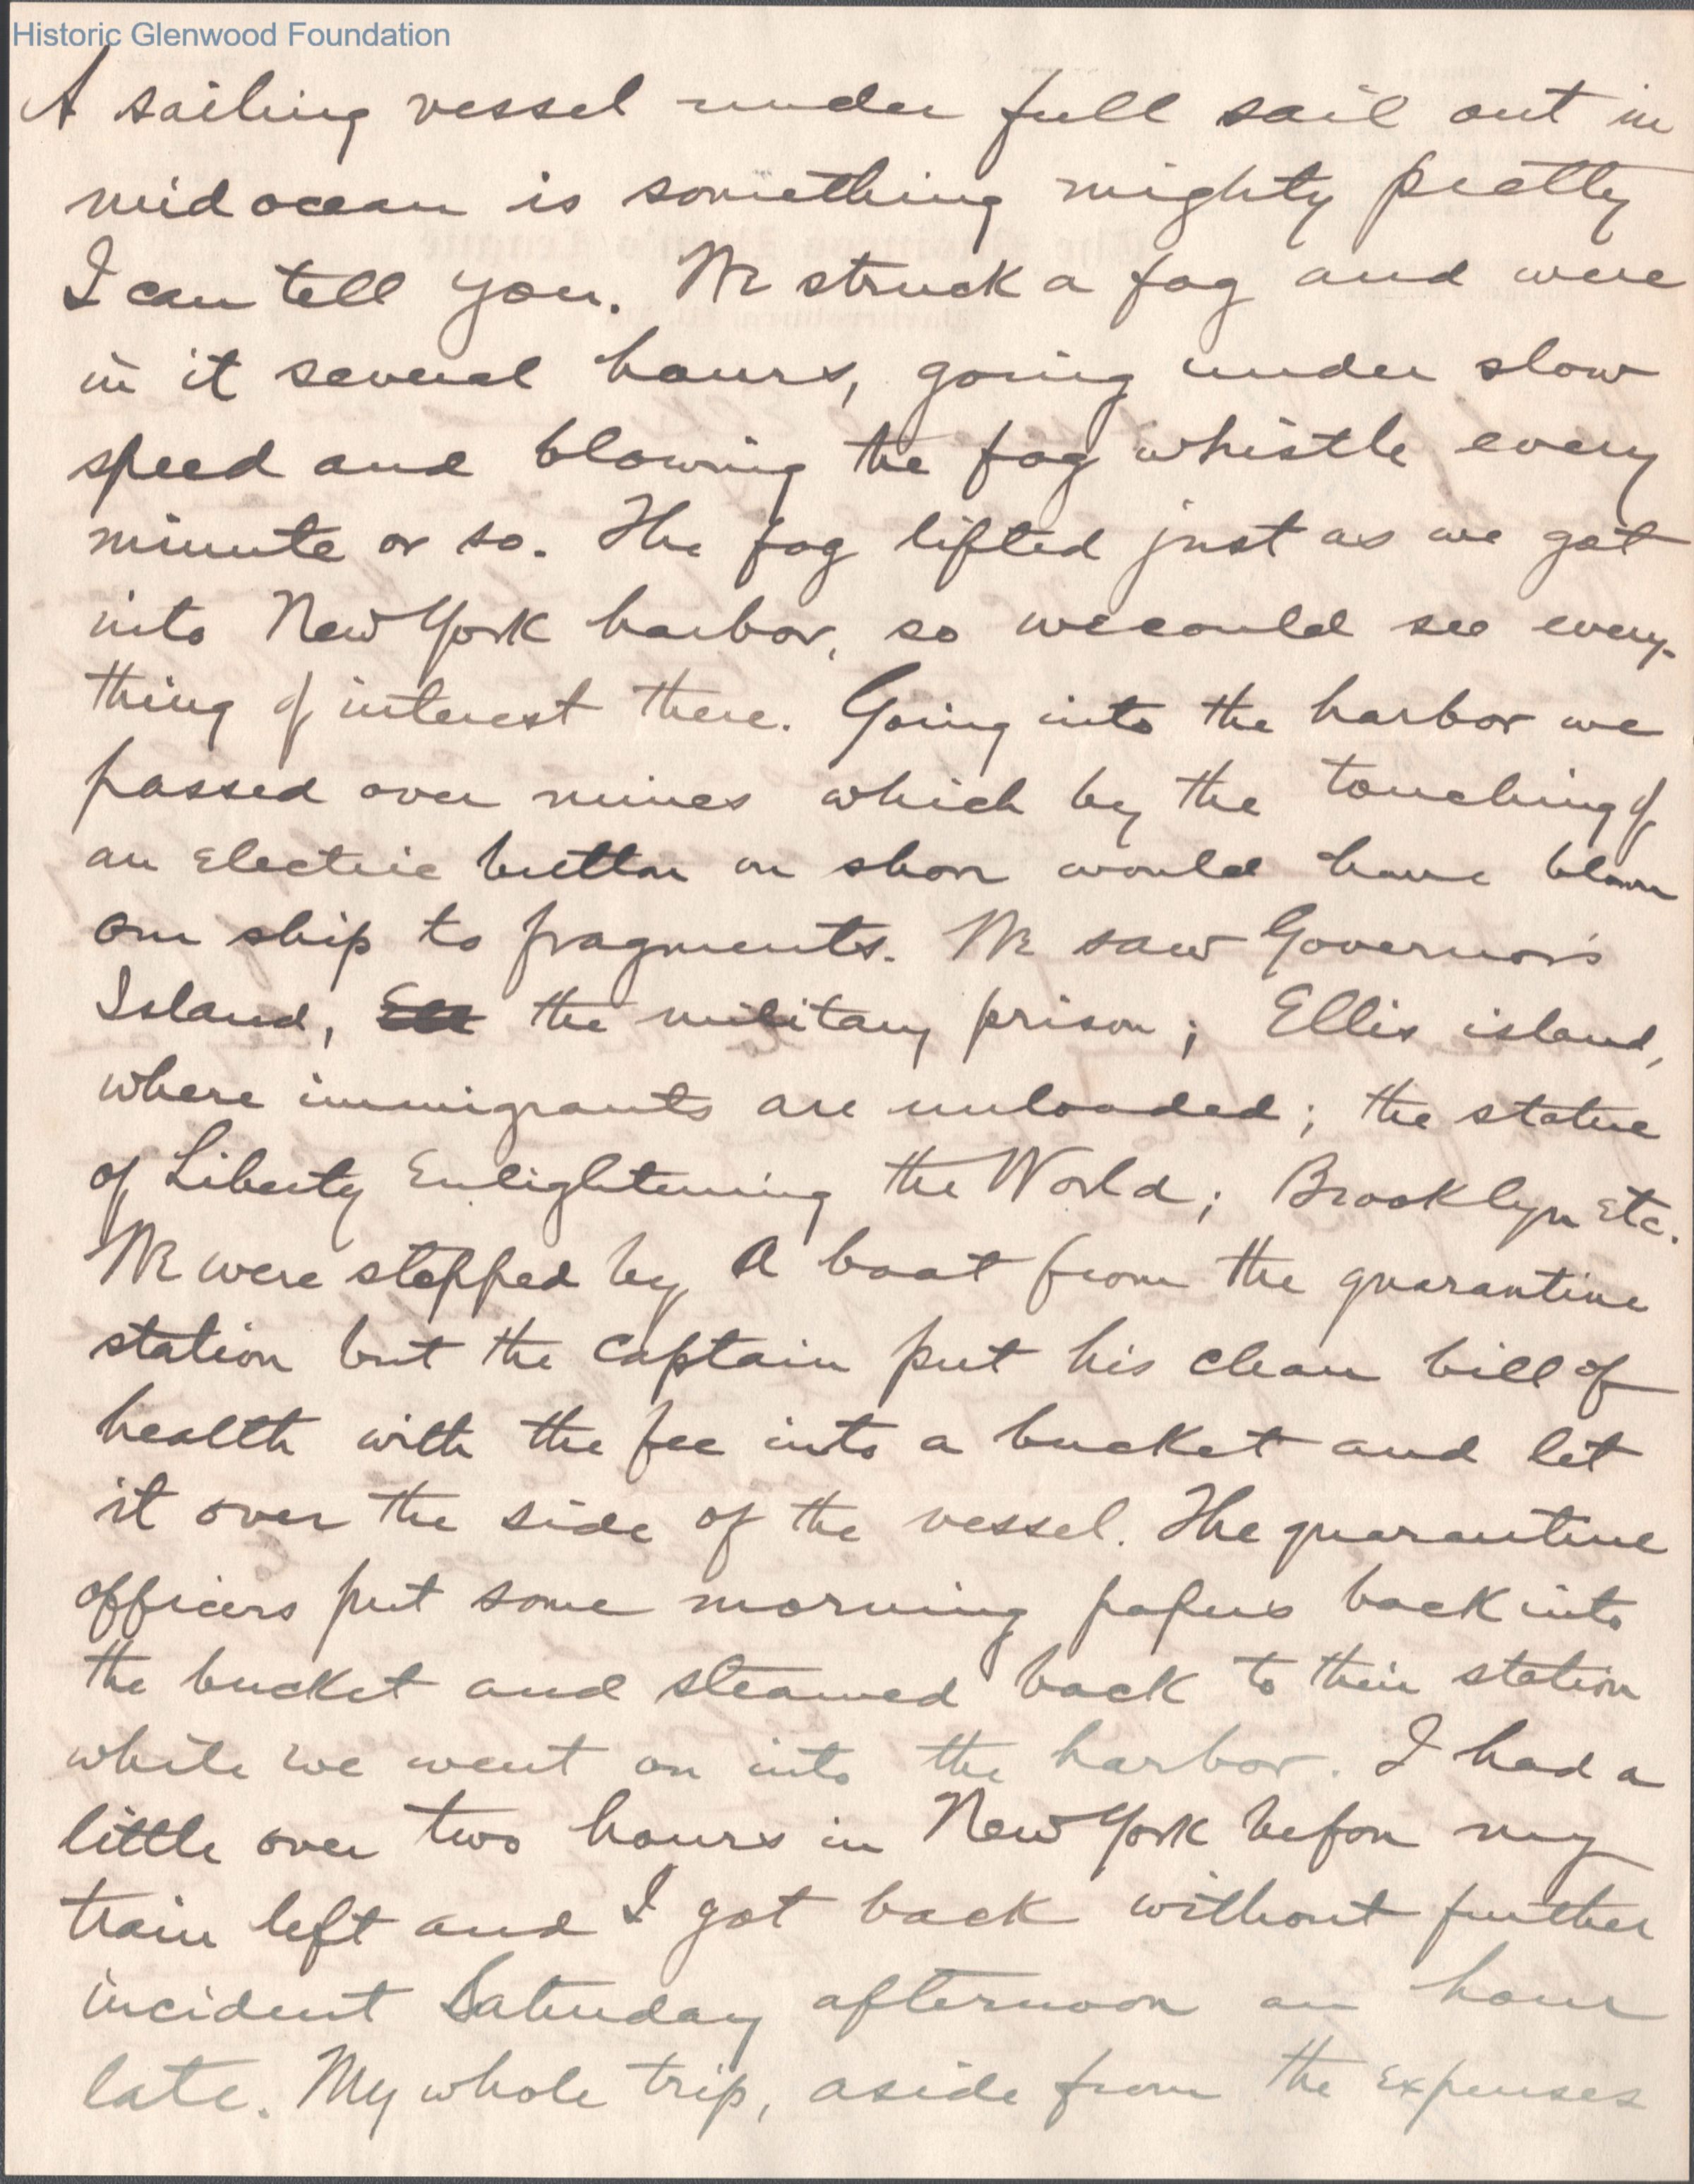 Historic Glenwood Foundation
A sailing vessel under full sail out in
mid ocean is something mighty pretty
I can tell you. We struck a fog and were
in it several hours, going under slow
speed and blowing the fog whistle every
minute or so. The fog lifted just as we got
into New York harbor, so we could see every-
thing of interest there. Going into the harbor we
passed over mines which by the touching of
an electric button on shore would have blown
our ship to fragments. We saw Governor's
Island, the military prison; Ellis island,
where immigrants are unloaded; the statue
of Liberty Enlightening the World; Brooklyn etc.
We were stopped by a boat from the quarantine
station but the captain put his clean bill of
health with the fee into a bucket and let
it over the side of the vessel. The quarantine
officers put some morning papers back into
the bucket and steamed back to their station
while we went on into the harbor. I had a
little over two hours in New York before my
train left and I got back without further
incident Saturday afternoon an hour
late. My whole trip, aside from the expenses